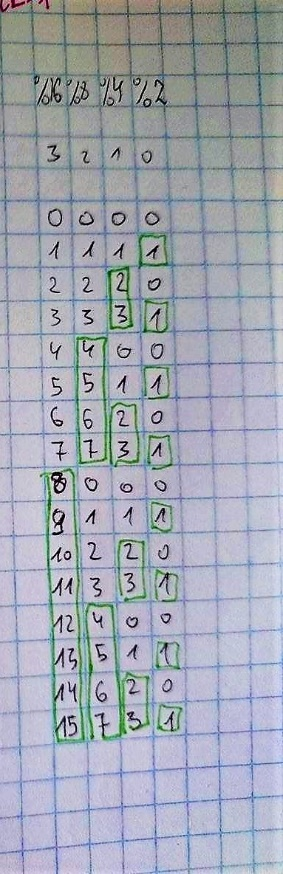 %16 %8 %4 %2
3 2 1 0
0 0 0 0
1 1 1 1
2 2 2 0
3 3 3 1
4 4 0 0
5 5 1 1
6 6 2 0
7 7 3 1
8 0 0 0
9 1 1 1
10 2 2 0
11 3 3 1
12 4 0 0
13 5 1 1
14 6 2 0
15 7 3 1